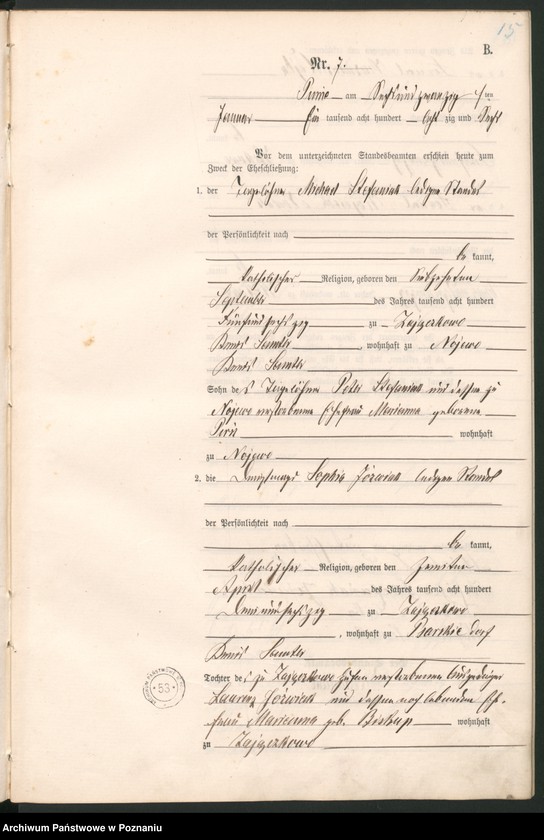 15
B.
Nr. 7.
Pniewo am Sechsundzwanzigsten
Januar Ein tausend acht hundert achtzig und sechs
Vor dem unterzeichneten Standesbeamten erschien heute zum
Zweck der Eheschließung:
1. der Tagelöhner Michael Stefaniak ledigen Standes
der Persönlichkeit nach
be kannt,
katholischer Religion, geboren den
September des Jahres tausend acht hundert
fünfundsechszig zu Zajączkowo
Kreis Samter, wohnhaft zu Nojewo
Kreis Samter
Sohn des Tagelöhners Peter Stefaniak und dessen zu
Nojewo verstorbenen Ehefrau Marianna geborene
wohnhaft
zu Nojewo
2. die Dienstmagd Sophie Józwiak ledigen Standes
der Persönlichkeit nach
be kannt,
katholischer Religion, geboren den zweiten
April des Jahres tausend acht hundert
dreiundsechszig zu Zajączkowo
, wohnhaft zu dorf
Kreis Samter
Tochter des zu Zajączkowo verstorbenen
Lawrenz Józwiak und dessen noch lebenden Ehe-
frau Marianna geb. Biskup wohnhaft
zu Zajączkowo
53
Archiwum Państwowe w Poznaniu
www.szukajwarchiwach.pl